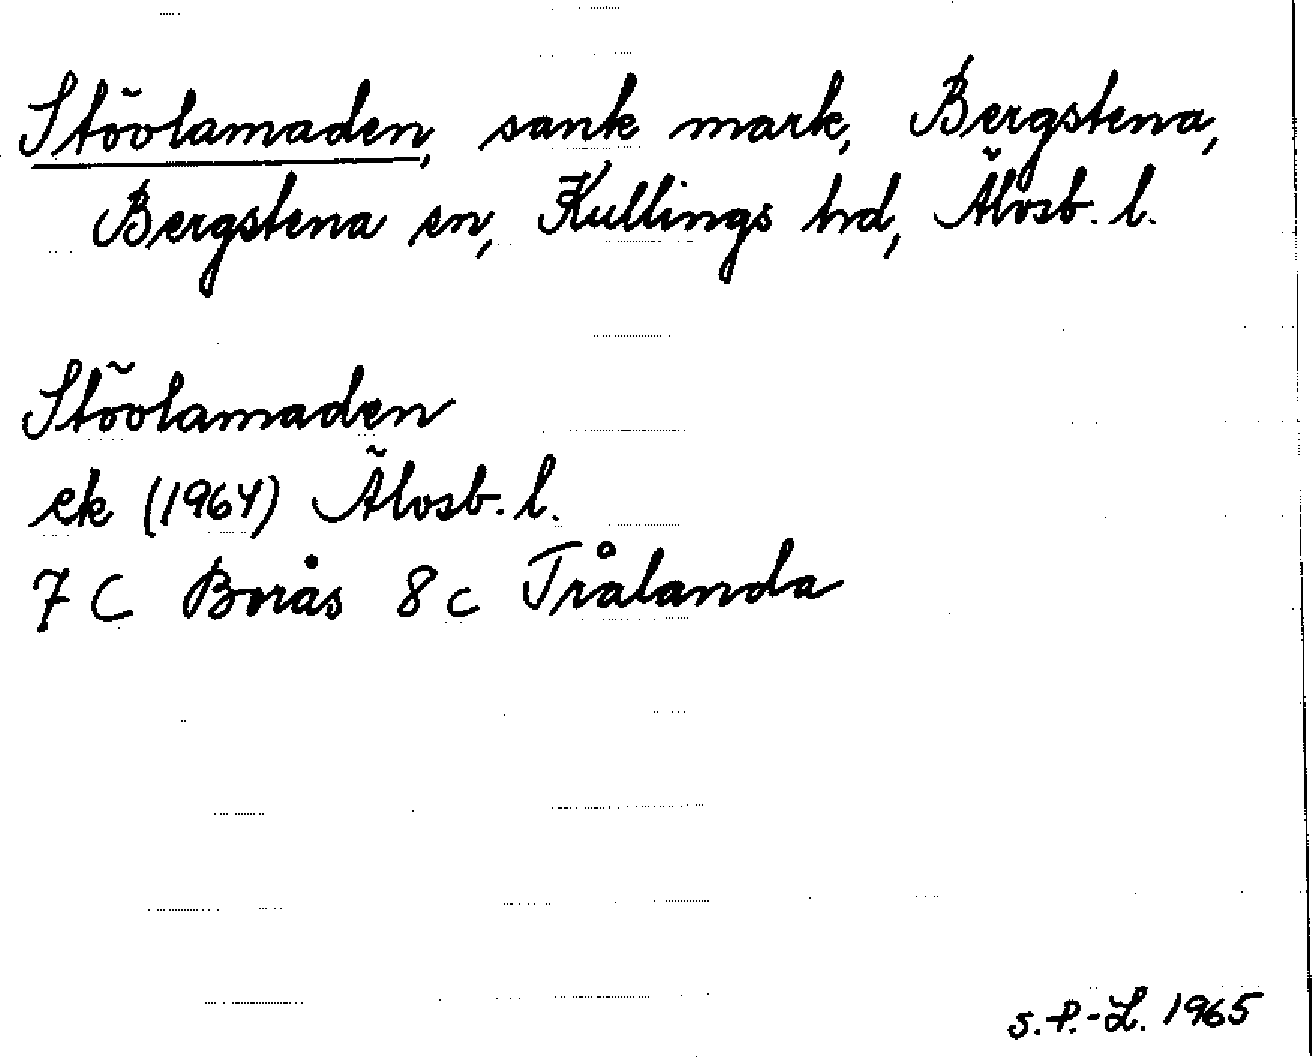 Stövlamaden, sank mark, Bergstena,
Bergstena sn, Kullings hd, Älvsb. l.
Stövlamaden
ek (1964) Älvsb. l.
7 C Borås 8 c Trålanda
S. P.-L. 1965